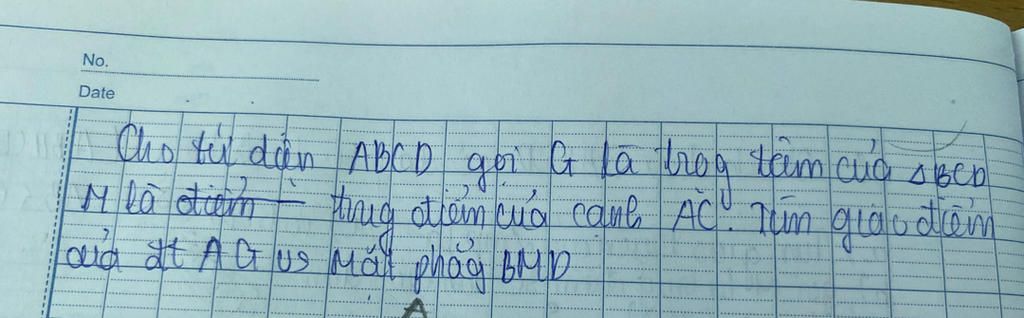 No.
Date
Cho tứ diện ABCD gọi G là trog tâm của △BCD
M là điểm trug điểm của cạnh AC. Tìm giao điểm
của đt AG vs mặt phẳg BMD
A